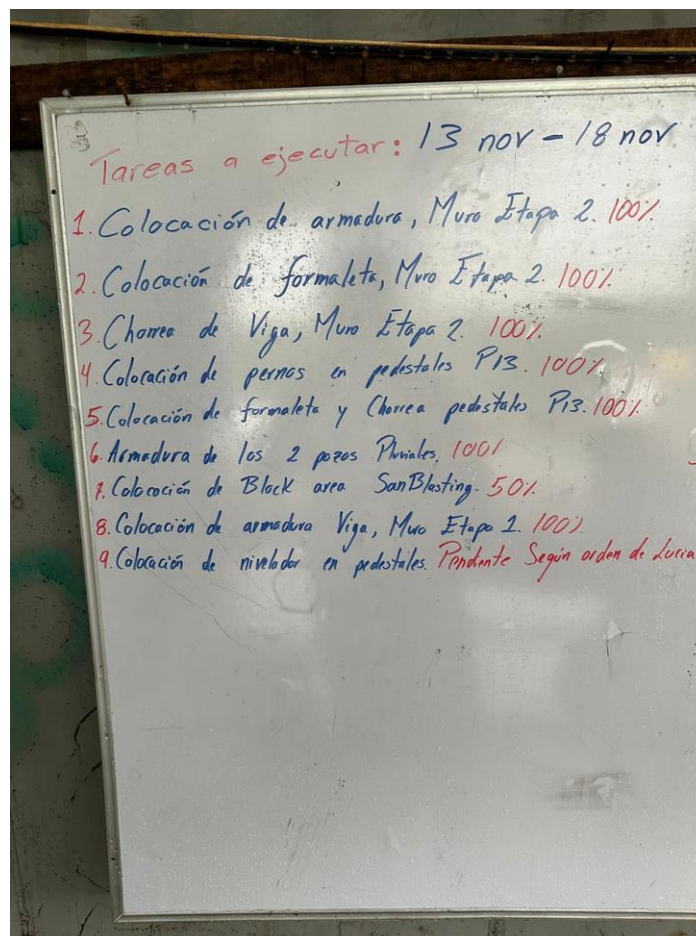 Tareas a ejecutar: 13 nov - 18 nov
1. Colocación de armadura, Muro Etapa 2. 100%
2. Colocación de formaleta, Muro Etapa 2. 100%
3. Chorrea de Viga, Muro Etapa 2. 100%
4. Colocación de pernos en pedestales P13. 100%
5. Colocación de formaleta y Chorrea pedestales P13. 100%
6. Armadura de los 2 pozos Pluviales. 100%
7. Colocación de Block area SanBlasting. 50%
8. Colocación de armadura Viga, Muro Etapa 1. 100%
9. Colocación de nivelador en pedestales. Pendiente Según orden de Lucia